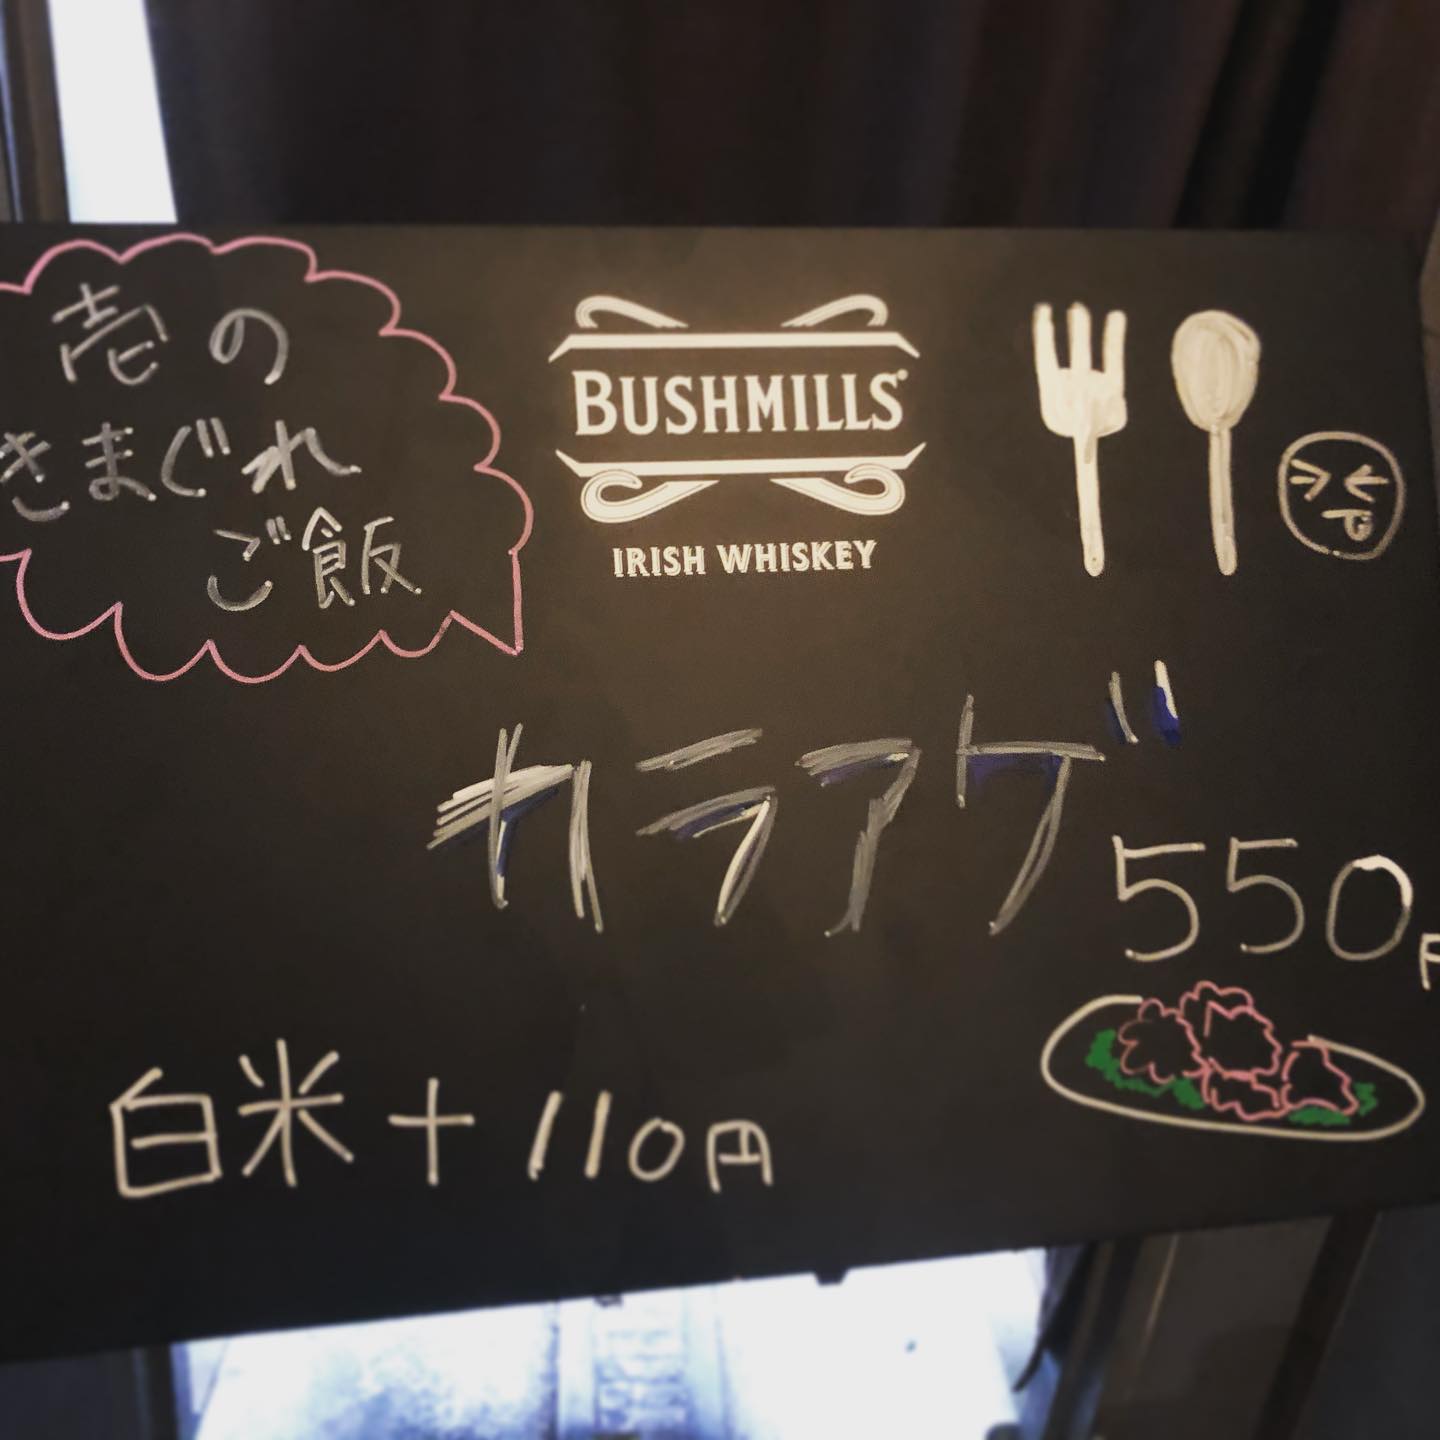 壱の
きまぐれ
ご飯
BUSHMILLS®
IRISH WHISKEY
カラアゲ
550円
白米+110円